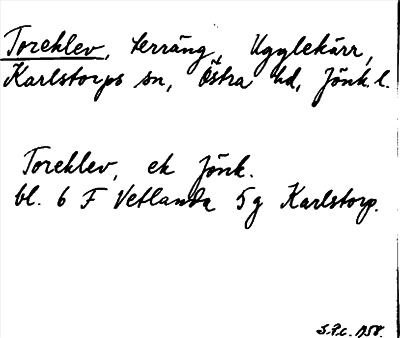 Toreklev, terräng, Ugglekärr,
Karlstorps sn, Östra hd, Jönk. l.
Toreklev, ek Jönk.
bl. 6 F Vetlanda 5g Karlstorp.